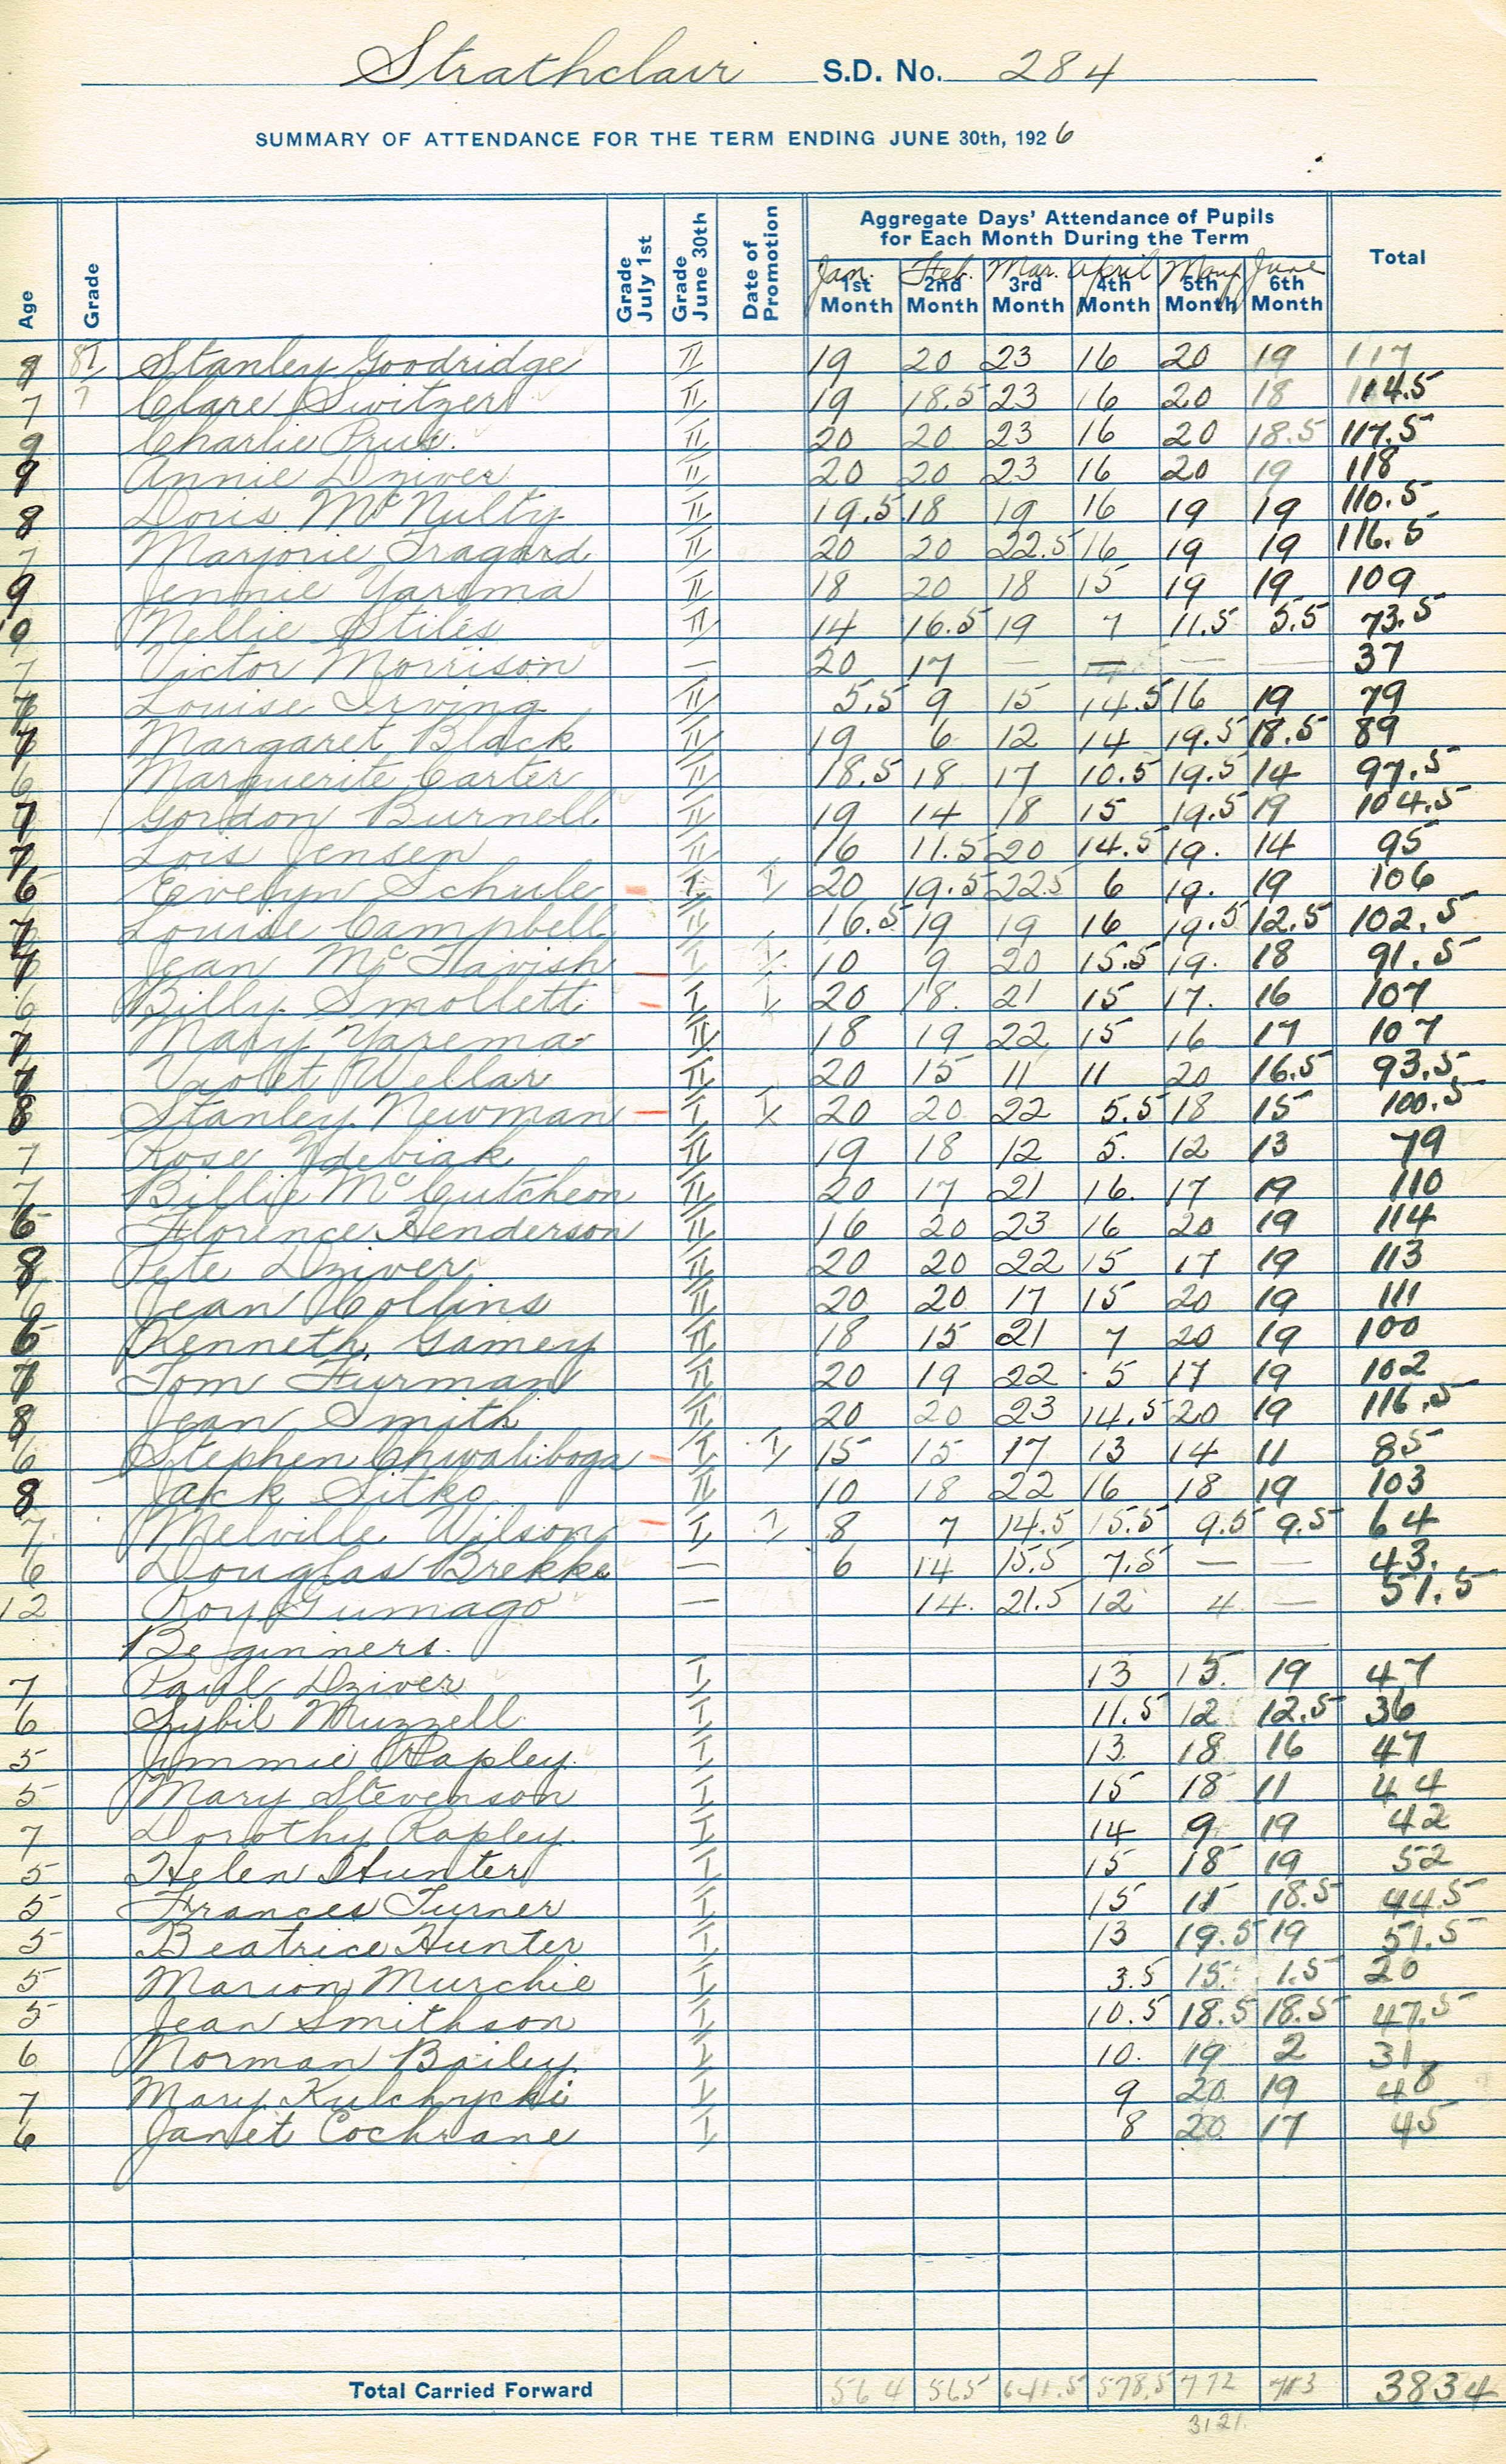 Strathclair S.D. No. 284
SUMMARY OF ATTENDANCE FOR THE TERM ENDING JUNE 30th, 1926
Age Grade Grade July 1st Grade June 30th Date of Promotion Aggregate Days' Attendance of Pupils for Each Month During the Term Total
Jan. Feb. Mar. April May June
1st Month 2nd Month 3rd Month 4th Month 5th Month 6th Month
8 I Stanley Goodridge II 19 20 23 16 20 19 117
7 7 Clare Switzer II 19 18.5 23 16 20 18 114.5
9 Charlie Prus. II 20 20 23 16 20 18.5 117.5
9 Annie Dziver II 20 20 23 16 20 19 118
8 Doris McNulty II 19.5 18 19 16 19 19 110.5
7 Marjorie Tragard II 20 20 22.5 16 19 19 116.5
9 Jennie Yarema II 18 20 18 15 19 19 109
9 Nellie Stiles II 14 16.5 19 7 11.5 5.5 73.5
7 Victor Morrison — 20 17 — — — — 37
7 Louise Irving II 5.5 9 15 14.5 16 19 79
7 Margaret Black II 19 6 12 14 19.5 18.5 89
6 Marguerite Carter II 18.5 18 17 10.5 19.5 14 97.5
7 Gordon Burnell II 19 14 18 15 19.5 19 104.5
7 Lois Jensen II 16 11.5 20 14.5 19. 14 95
6 Evelyn Schule I I 20 19.5 22.5 6 19. 19 106
7 Louise Campbell II 16.5 19 19 16 19.5 12.5 102.5
7 Jean McTavish I I 10 9 20 15.5 19. 18 91.5
6 Billy Smollett I I 20 18. 21 15 17. 16 107
7 Mary Yarema II 18 19 22 15 16 17 107
7 Violet Wellar II 20 15 11 11 20 16.5 93.5
8 Stanley Newman I I 20 20 22 5.5 18 15 100.5
7 Rose Zdebiak II 19 18 12 5. 12 13 79
7 Billie McCutcheon II 20 17 21 16. 17 19 110
6 Florence Henderson II 16 20 23 16 20 19 114
8 Pete Dziver II 20 20 22 15 17 19 113
6 Jean Collins II 20 20 17 15 20 19 111
6 Kenneth Gamey II 18 15 21 7 20 19 100
7 Tom Furman II 20 19 22 5 17 19 102
8 Jean Smith II 20 20 23 14.5 20 19 116.5
6 Stephen Chwaliboga I I 15 15 17 13 14 11 85
8 Jack Sitko II 10 18 22 16 18 19 103
7 Melville Wilson I I 8 7 14.5 15.5 9.5 9.5 64
6 Douglas Brekke — 6 14 15.5 7.5 — — 43.
12 Roy Gumago — 14. 21.5 12 4 — 51.5
Beginners.
7 Paul Dziver I 13 15. 19 47
6 Sybil Muzzell I 11.5 12 12.5 36
5 Jimmie Rapley I 13 18 16 47
5 Mary Stevenson I 15 18 11 44
7 Dorothy Rapley I 14 9 19 42
5 Helen Hunter I 15 18 19 52
5 Frances Turner I 15 11 18.5 44.5
5 Beatrice Hunter I 13 19.5 19 51.5
5 Marion Murchie I 3.5 15. 1.5 20
5 Jean Smithson I 10.5 18.5 18.5 47.5
6 Norman Bailey I 10. 19 2 31
7 Mary Kulchycki I 9 20 19 48
6 Janet Cochrane I 8 20 17 45
Total Carried Forward 564 565 641.5 578.5 772 713 3834
3121.